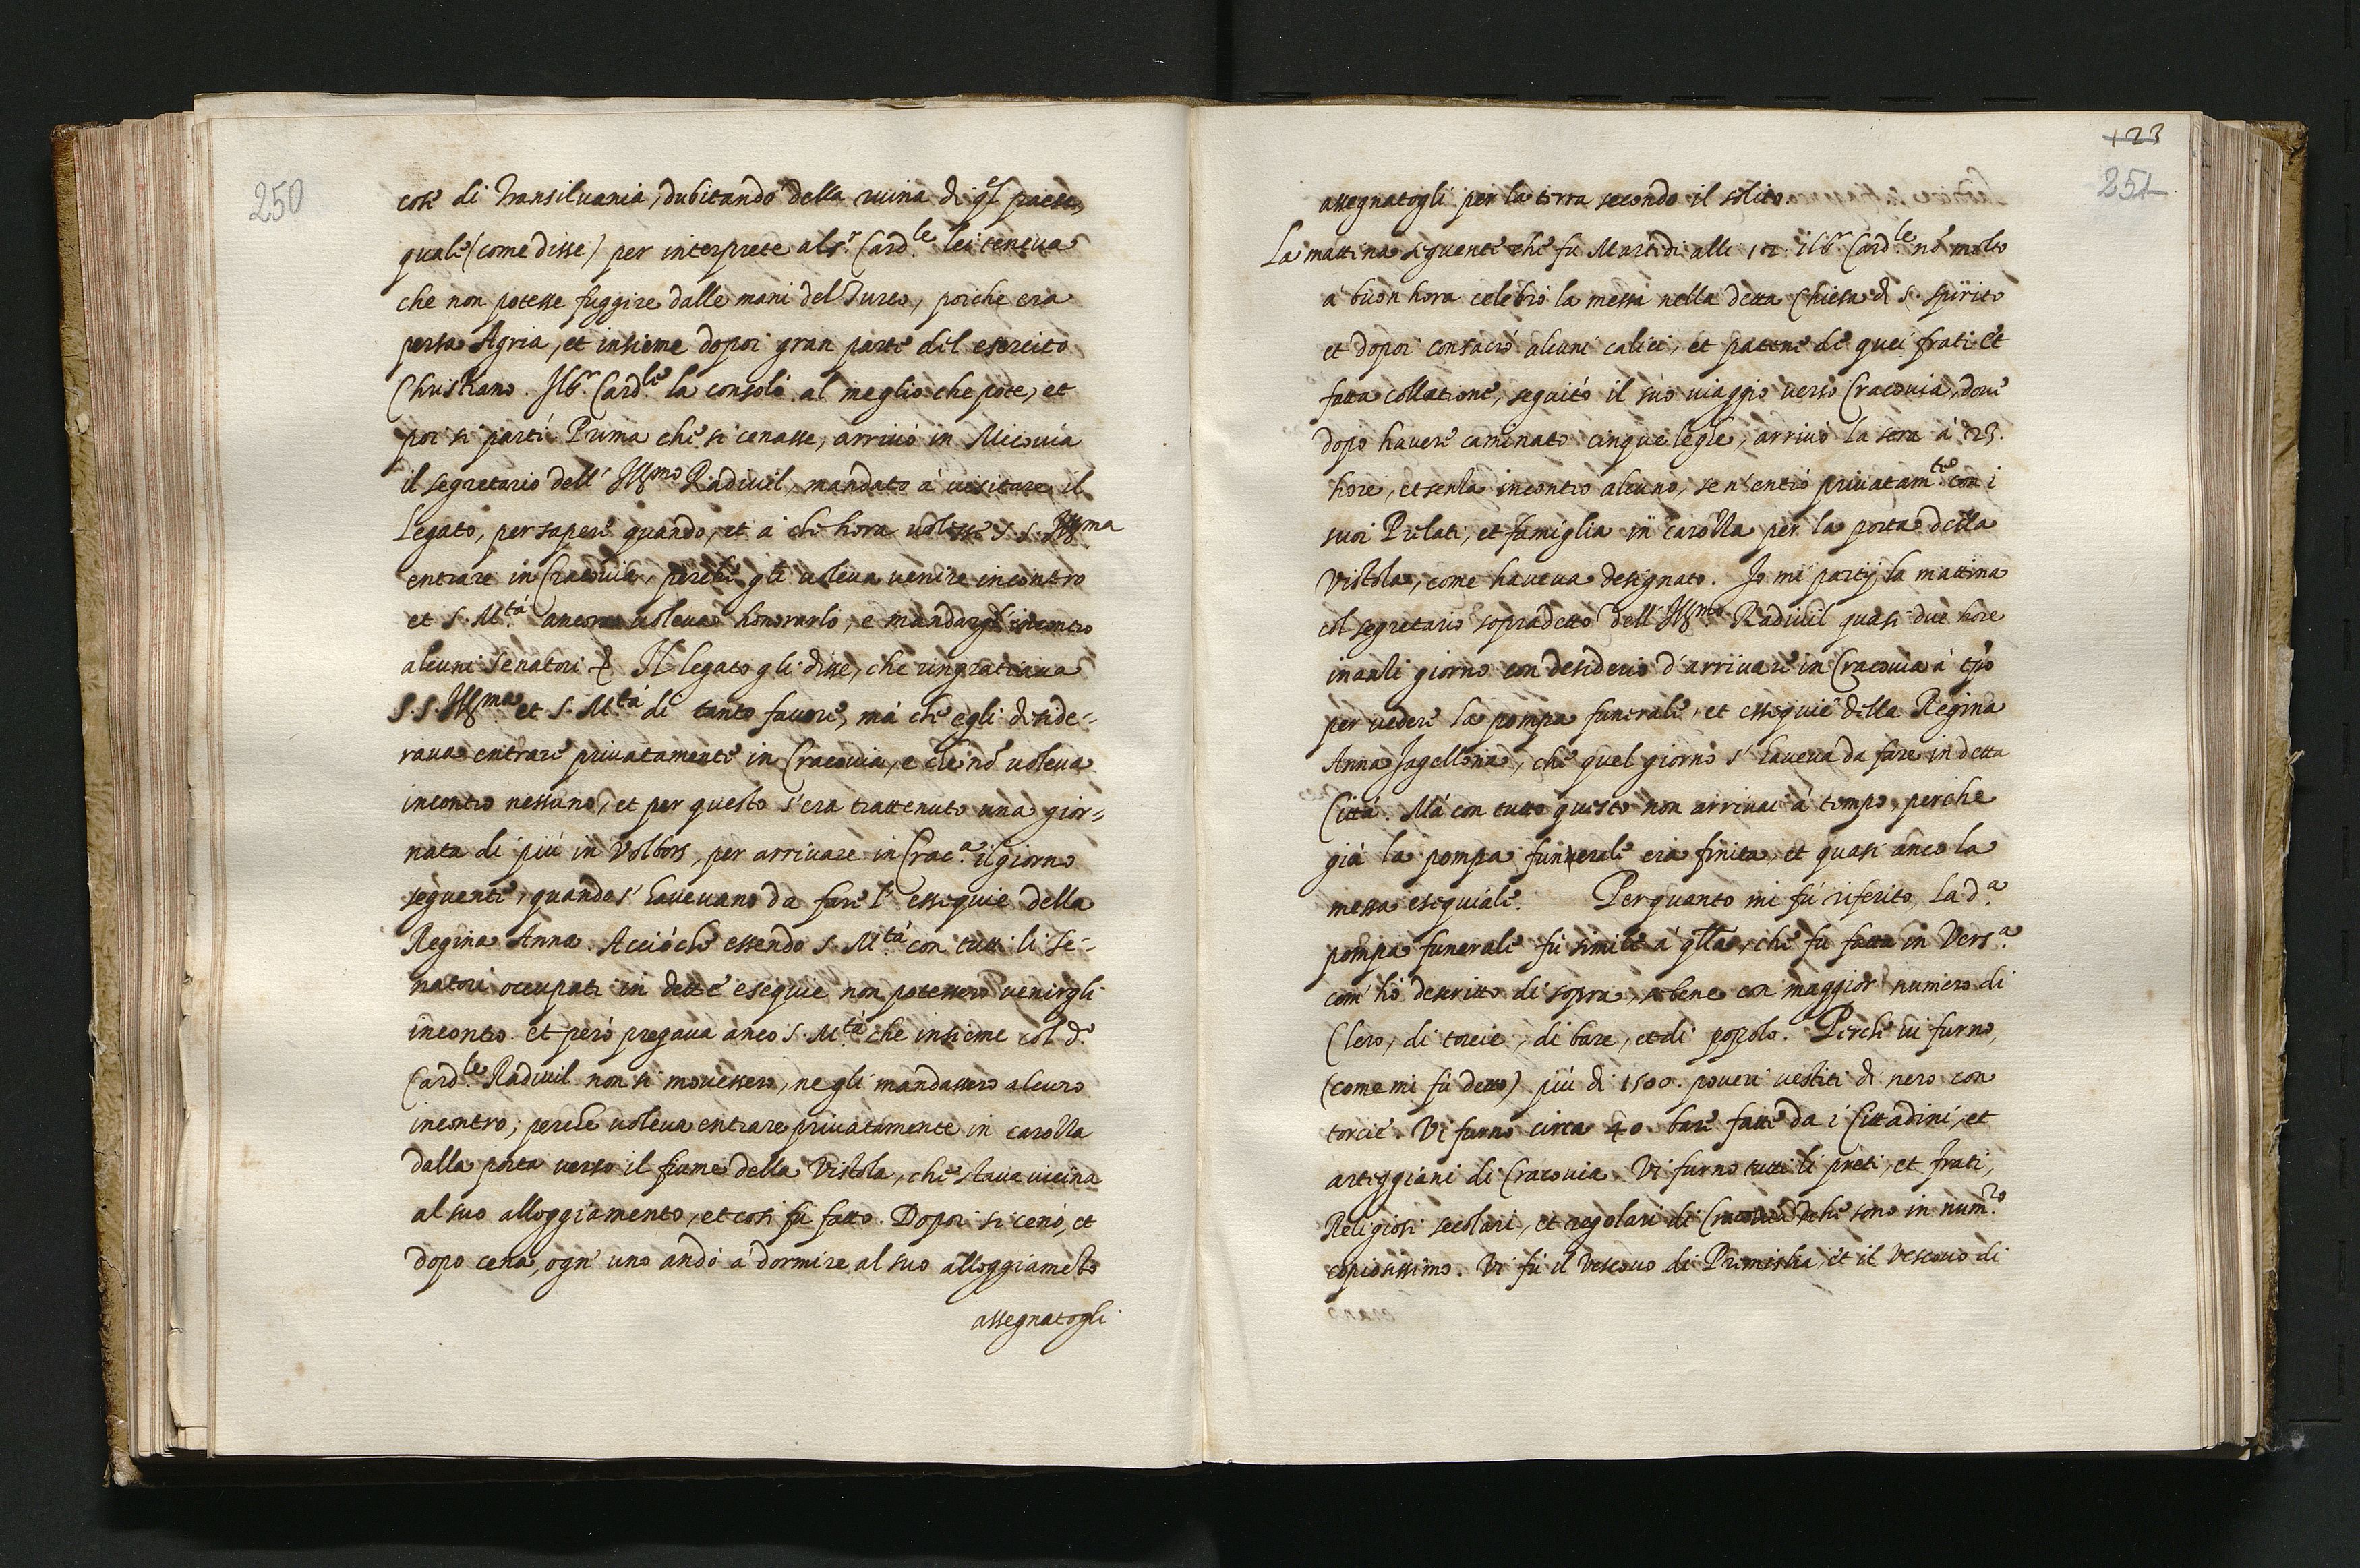 250
cose di Transiluania, dubitando della ruina di q̃sto paese,
quale (come disse) per interprete al s.r Card.le lei teneua
che non potesse fuggire dalle mani del Turco, poiche era
persa Agria, et insieme dopoi gran parte del esercito
Christiano. Il s.r Card.le la consolò al meglio che pote, et
poi si partì. Prima che si cenasse, arriuò in Micouia
il segretario dell' Ill.mo Radiuil, mandato à uisitare il
Legato, per sapere quando, et à che hora uolesse S. S. Ill.ma
entrare in Cracouia, perche gli uoleua uenire incontro
et S. M.tà ancora uoleua honorarlo, e mandargli incontro
alcuni senatori &. Il legato gli disse, che ringratiaua
S. S. Ill.ma et S. M.tà di tanto fauore, mà che egli deside=
raua entrare priuatamente in Cracouia, e che nõ uoleua
incontro nessuno, et per questo s'era trattenuto una gior=
nata di più in Volbors, per arriuare in Crac.a il giorno
seguente, quando s' haueuano da fare l' essequie della
Regina Anna. Acciò che essendo S. M.tà con tutti li Se=
natori occupati in dette esequie non potessero uenirgli
incontro. et però pregaua anco S. M.tà che insieme col d.o
Card.le Radiuil non si mouessero, ne gli mandassero alcuno
incontro; perche uoleua entrare priuatamente in carozza
dalla porta uerso il fiume della Vistola, che staua uicina
al suo alloggiamento, et così fu fatto. Dopoi si cenò, et
dopo cena, ogn' uno andò à dormire al suo alloggiamẽto
assegnatogli
+23
251
assegnatogli per la terra secondo il solito.
La mattina seguente che fu Martedi alli 12. il s.r Card.le nõ molto
à buon hora celebrò la messa nella detta Chiesa di S. Spirito
et dopoi consacrò alcuni calici, et patene di quei frati et
fatta collatione, seguitò il suo uiaggio uerso Cracouia, doue
dopo hauere caminato cinque leghe, arriuò la sera à 23.
hore, et senza incontro alcuno, se n' entrò priuatam.te con i
suoi Prelati, et famiglia in carozza per la porta della
Vistola, come haueua designato. Io mi partij la mattina
col segretario sopradetto dell' Ill.mo Radiuil quasi due hore
inanzi giorno con desiderio d'arriuare in Cracouia à tp̃o
per uedere la pompa funerale, et essequie della Regina
Anna Jagellona, che quel giorno s' haueua da fare in detta
Città. Mà con tutto questo non arriuai à tempo, perche
già la pompa funerale era finita, et quasi anco la
messa esequiale. Per quanto mi fù riferito la d.a
pompa funerale fù simile à q̃lla, che fu fatta in Vers.a
com' hò descritto di sopra, se bene con maggior numero di
Clero, di torcie, di bare, et di popolo. Perche ui furno,
(come mi fù detto) più di 1500. poueri uestiti di nero con
torcie. Vi furno circa 40. bare fatte da i Cittadini, et
arteggiani di Cracouia. Vi furno tutti li preti, et frati,
Religiosi secolari, et regolari di Cracouia che sono in num.ro
copiosissimo. Vi fù il Vescouo di Premislia, et il Vescouo di